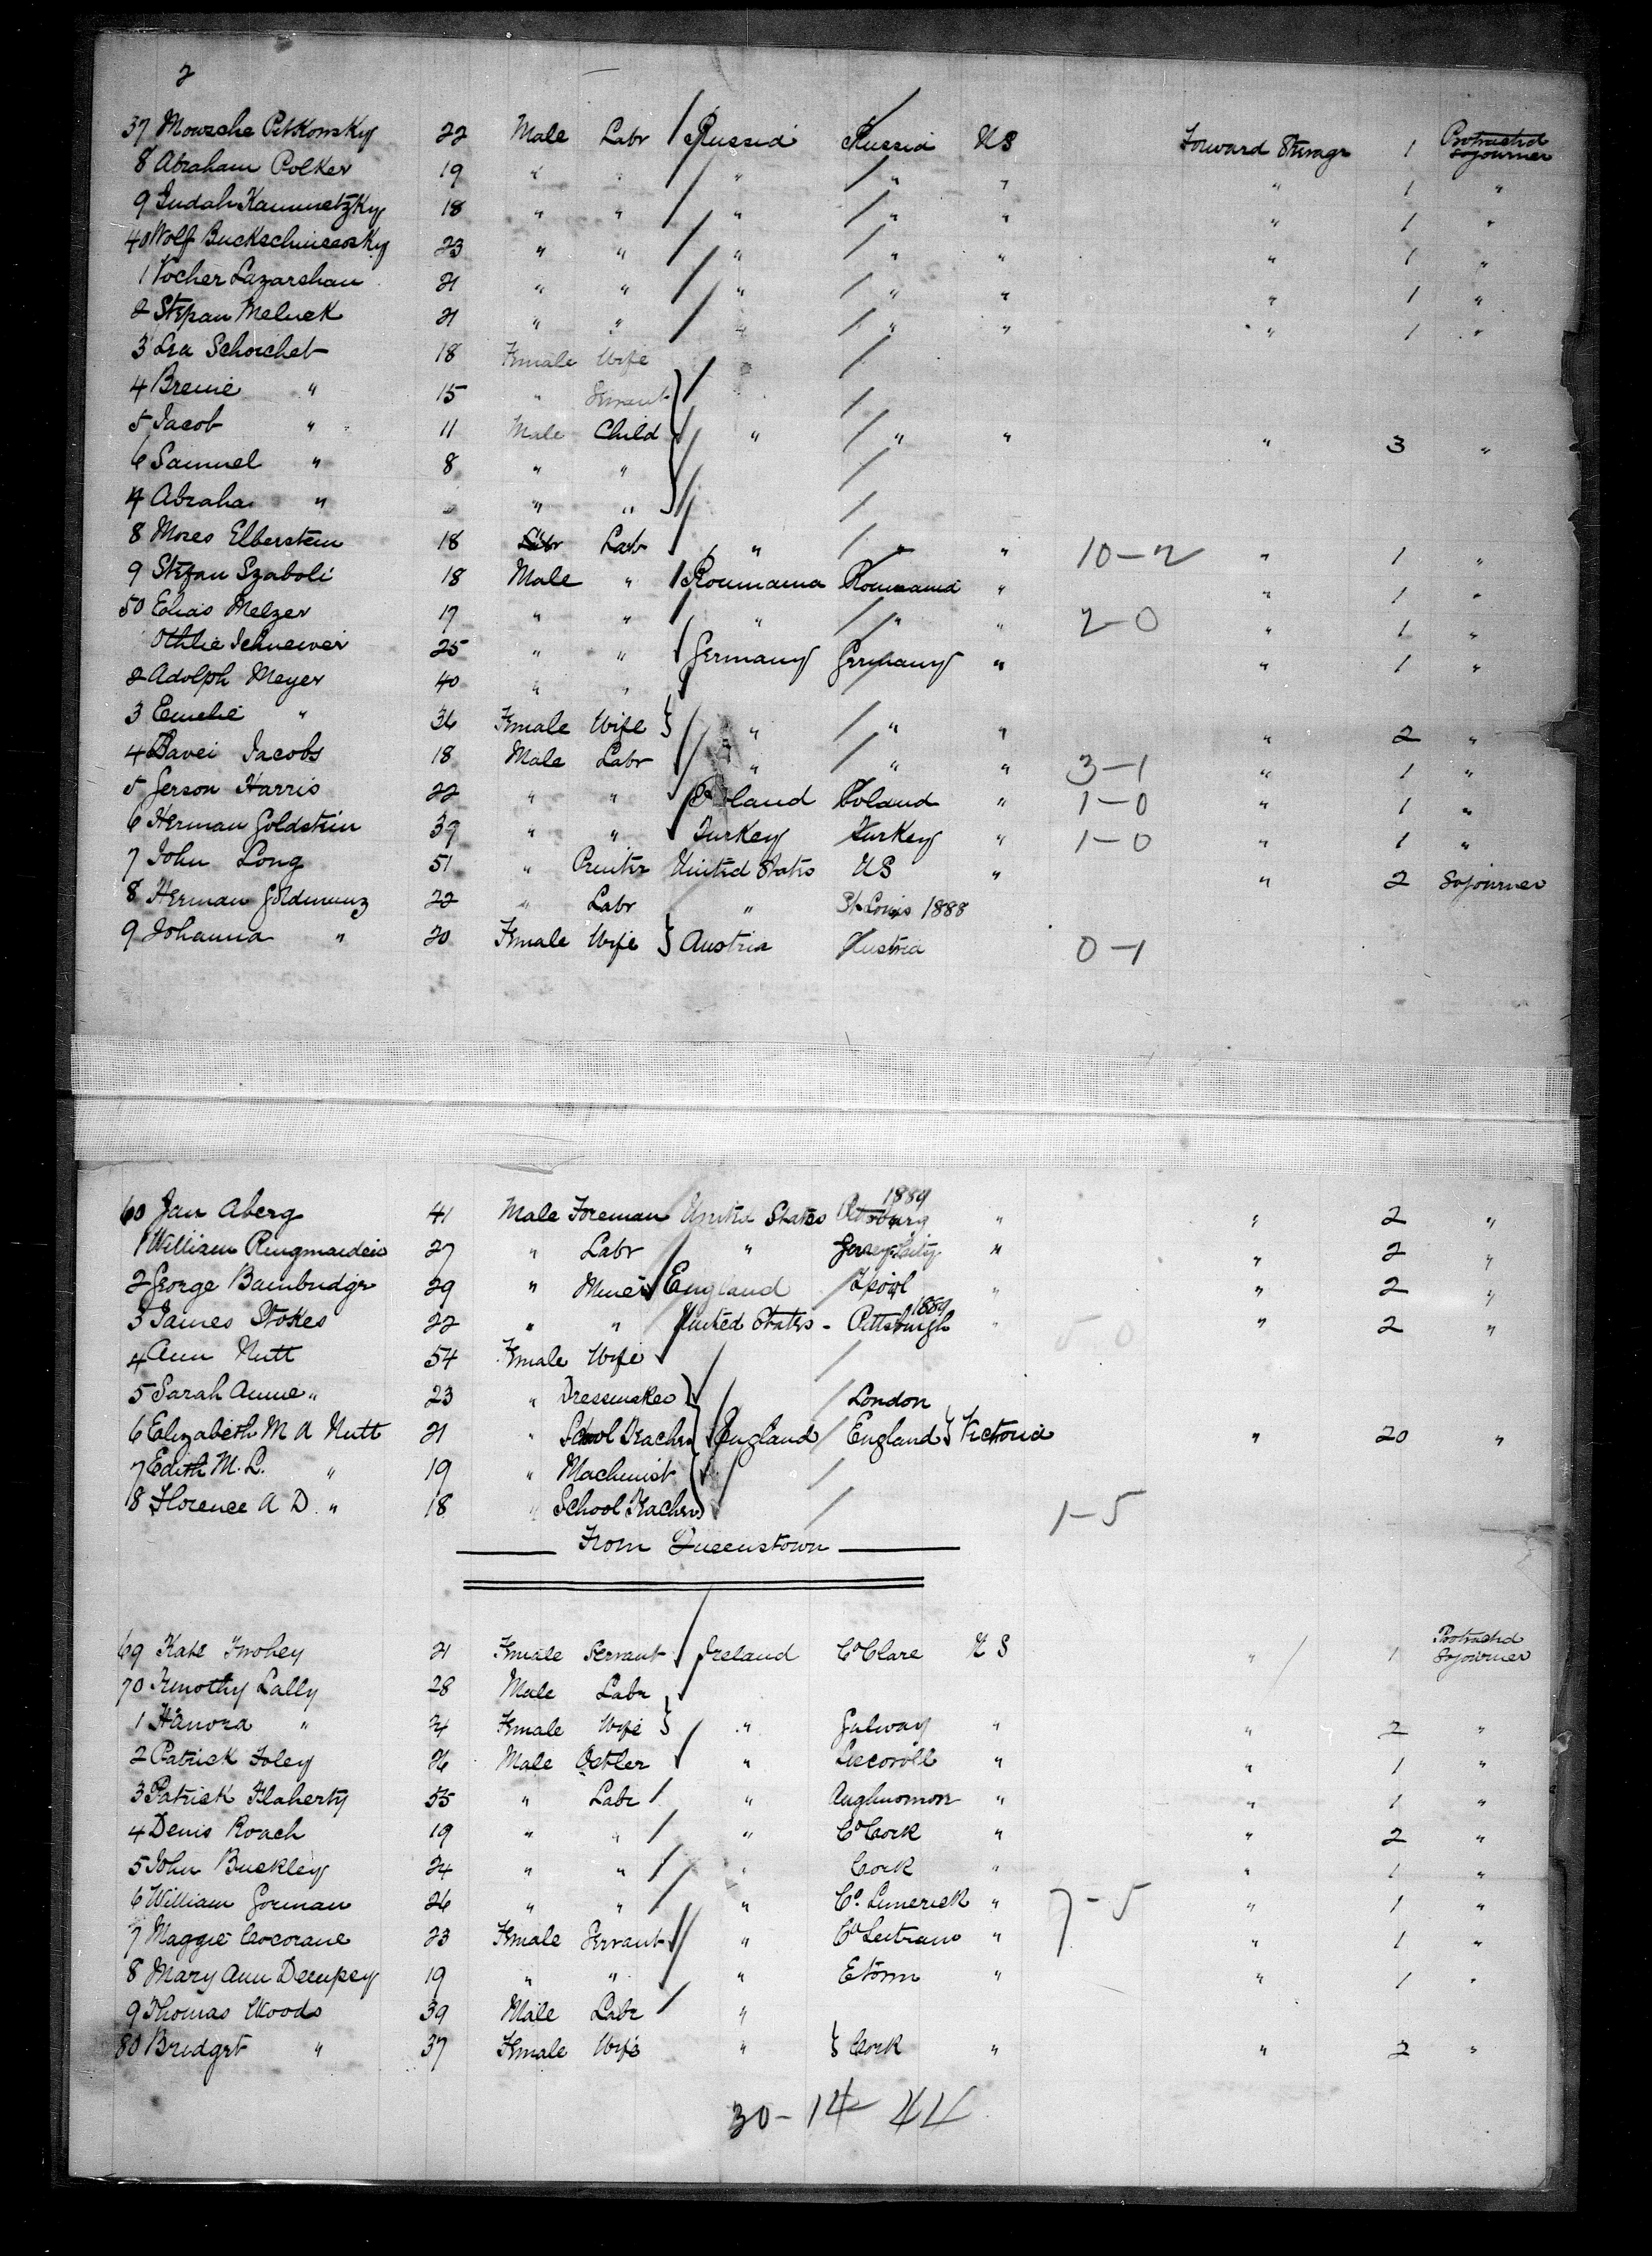 2
37 Mowsche Petkowsky 22 Male Labr Russia Russia US Forward Steerage 1 Protracted Sojourner
8 Abraham Polker 19 " " " " " " 1 "
9 Judah Kammetzky 18 " " " " " " 1 "
40 Wolf 23 " " " " " " 1 "
1 Vocher Lazarshan 21 " " " " " " 1 "
2 Stepan Meluck 21 " " " " " " 1 "
3 Lea Schoichet 18 Female Wife
4 Breine " 15 " Servant
5 Jacob " 11 Male Child " " " " 3 "
6 Samuel " 8 " "
7 Abraha " " "
8 Moses Elberstein 18 Labr " " " 10-2 " 1 "
9 Stefan Szaboli 18 Male " Roumania Roumania " " 1 "
50 Elias Melzer 17 " " " " " 2-0 " 1 "
Othlie 25 " " Germany Germany " " 1 "
2 Adolph Meyer 40 " "
3 Emelie " 36 Female Wife } " " " " 2 "
4 Davei Jacobs 18 Male Labr " " " 3-1 " 1 "
5 Gerson Harris 22 " " Poland Poland " 1-0 " 1 "
6 Herman Goldstein 39 " " Turkey Turkey " 1-0 " 1 "
7 John Long 51 " Printer United States US " " 2 Sojourner
8 Herman Goldmunz 22 " Labr " St Louis 1888
9 Johanna " 20 Female Wife } Austria Austria 0-1
60 Jan Aberg 41 Male Foreman United States 1889 " " 2 "
1 William Ringmaiden 27 " Labr " Jersey City " " 2 "
2 George Bambridge 29 " Miner England Lpool " " 2 "
3 James Stokes 22 " " United States - Pittsburgh 1889 " 5 0 " 2 "
4 Ann Nutt 54 Female Wife
5 Sarah Anne " 23 " Dressmaker London
6 Elizabeth M A Nutt 21 " School Teacher England England } Victoria " 20 "
7 Edith M. L. " 19 " Machinist
8 Florence A D. " 18 " School Teacher 1-5
From Queenstown
69 Kate Twohey 21 Female Servant Ireland Co Clare U S " 1 Protracted Sojourner
70 Timothy Lally 28 Male Labr
1 Hanora " 24 Female Wife } " Galway " " 2 "
2 Patrick Foley 26 Male Ostler " " " 1 "
3 Patrick Flaherty 55 " Labr " " " 1 "
4 Denis Roach 19 " " " Co Cork " " 2 "
5 John Buckley 24 " " " Cork " " 1 "
6 William Gorman 26 " " " Co. Limerick " 7-5 " 1 "
7 Maggie Cocorane 23 Female Servant " Co Leitrim " " 1 "
8 Mary Ann Dempsey 19 " " " " " 1 "
9 Thomas Woods 39 Male Labr "
80 Bridget " 37 Female Wife " } Cork " " 2 "
30-14 44